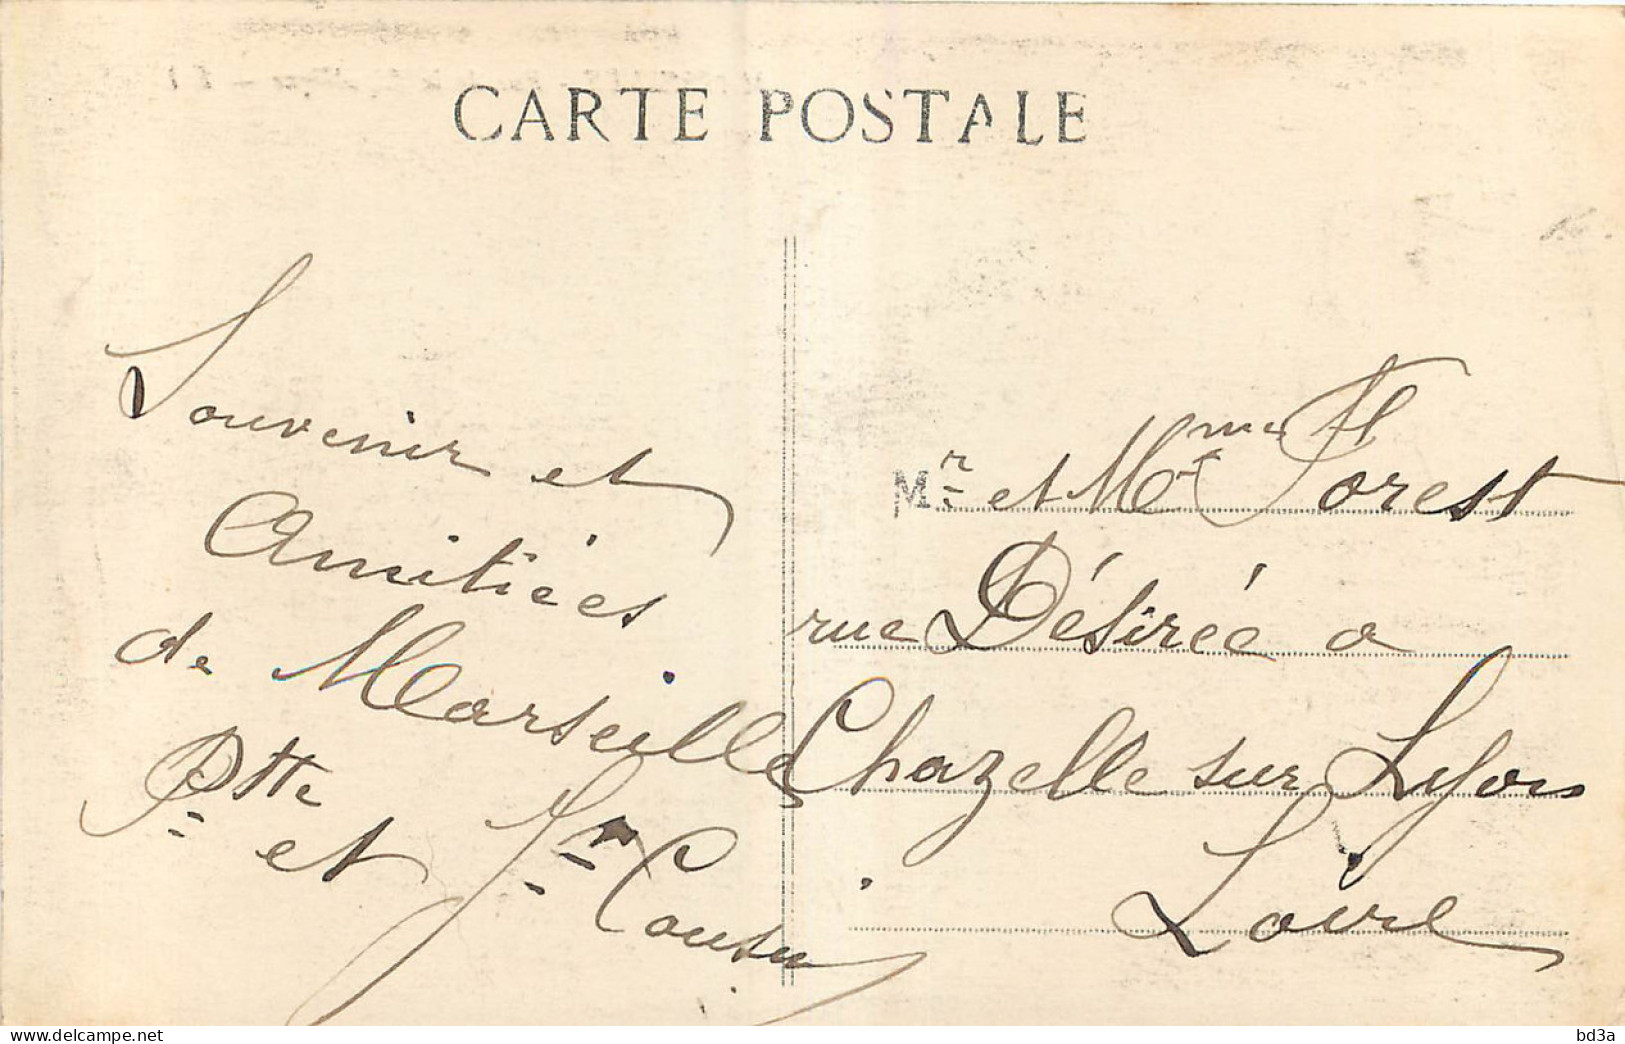 CARTE POSTALE
Souvenir et
Amitiées
de Marseille
Ptte
et Jn Cousin
Mr et Mme Forest
rue Désirée a
Chazelle sur Lyon
Loire
www.delcampe.net
bd3a